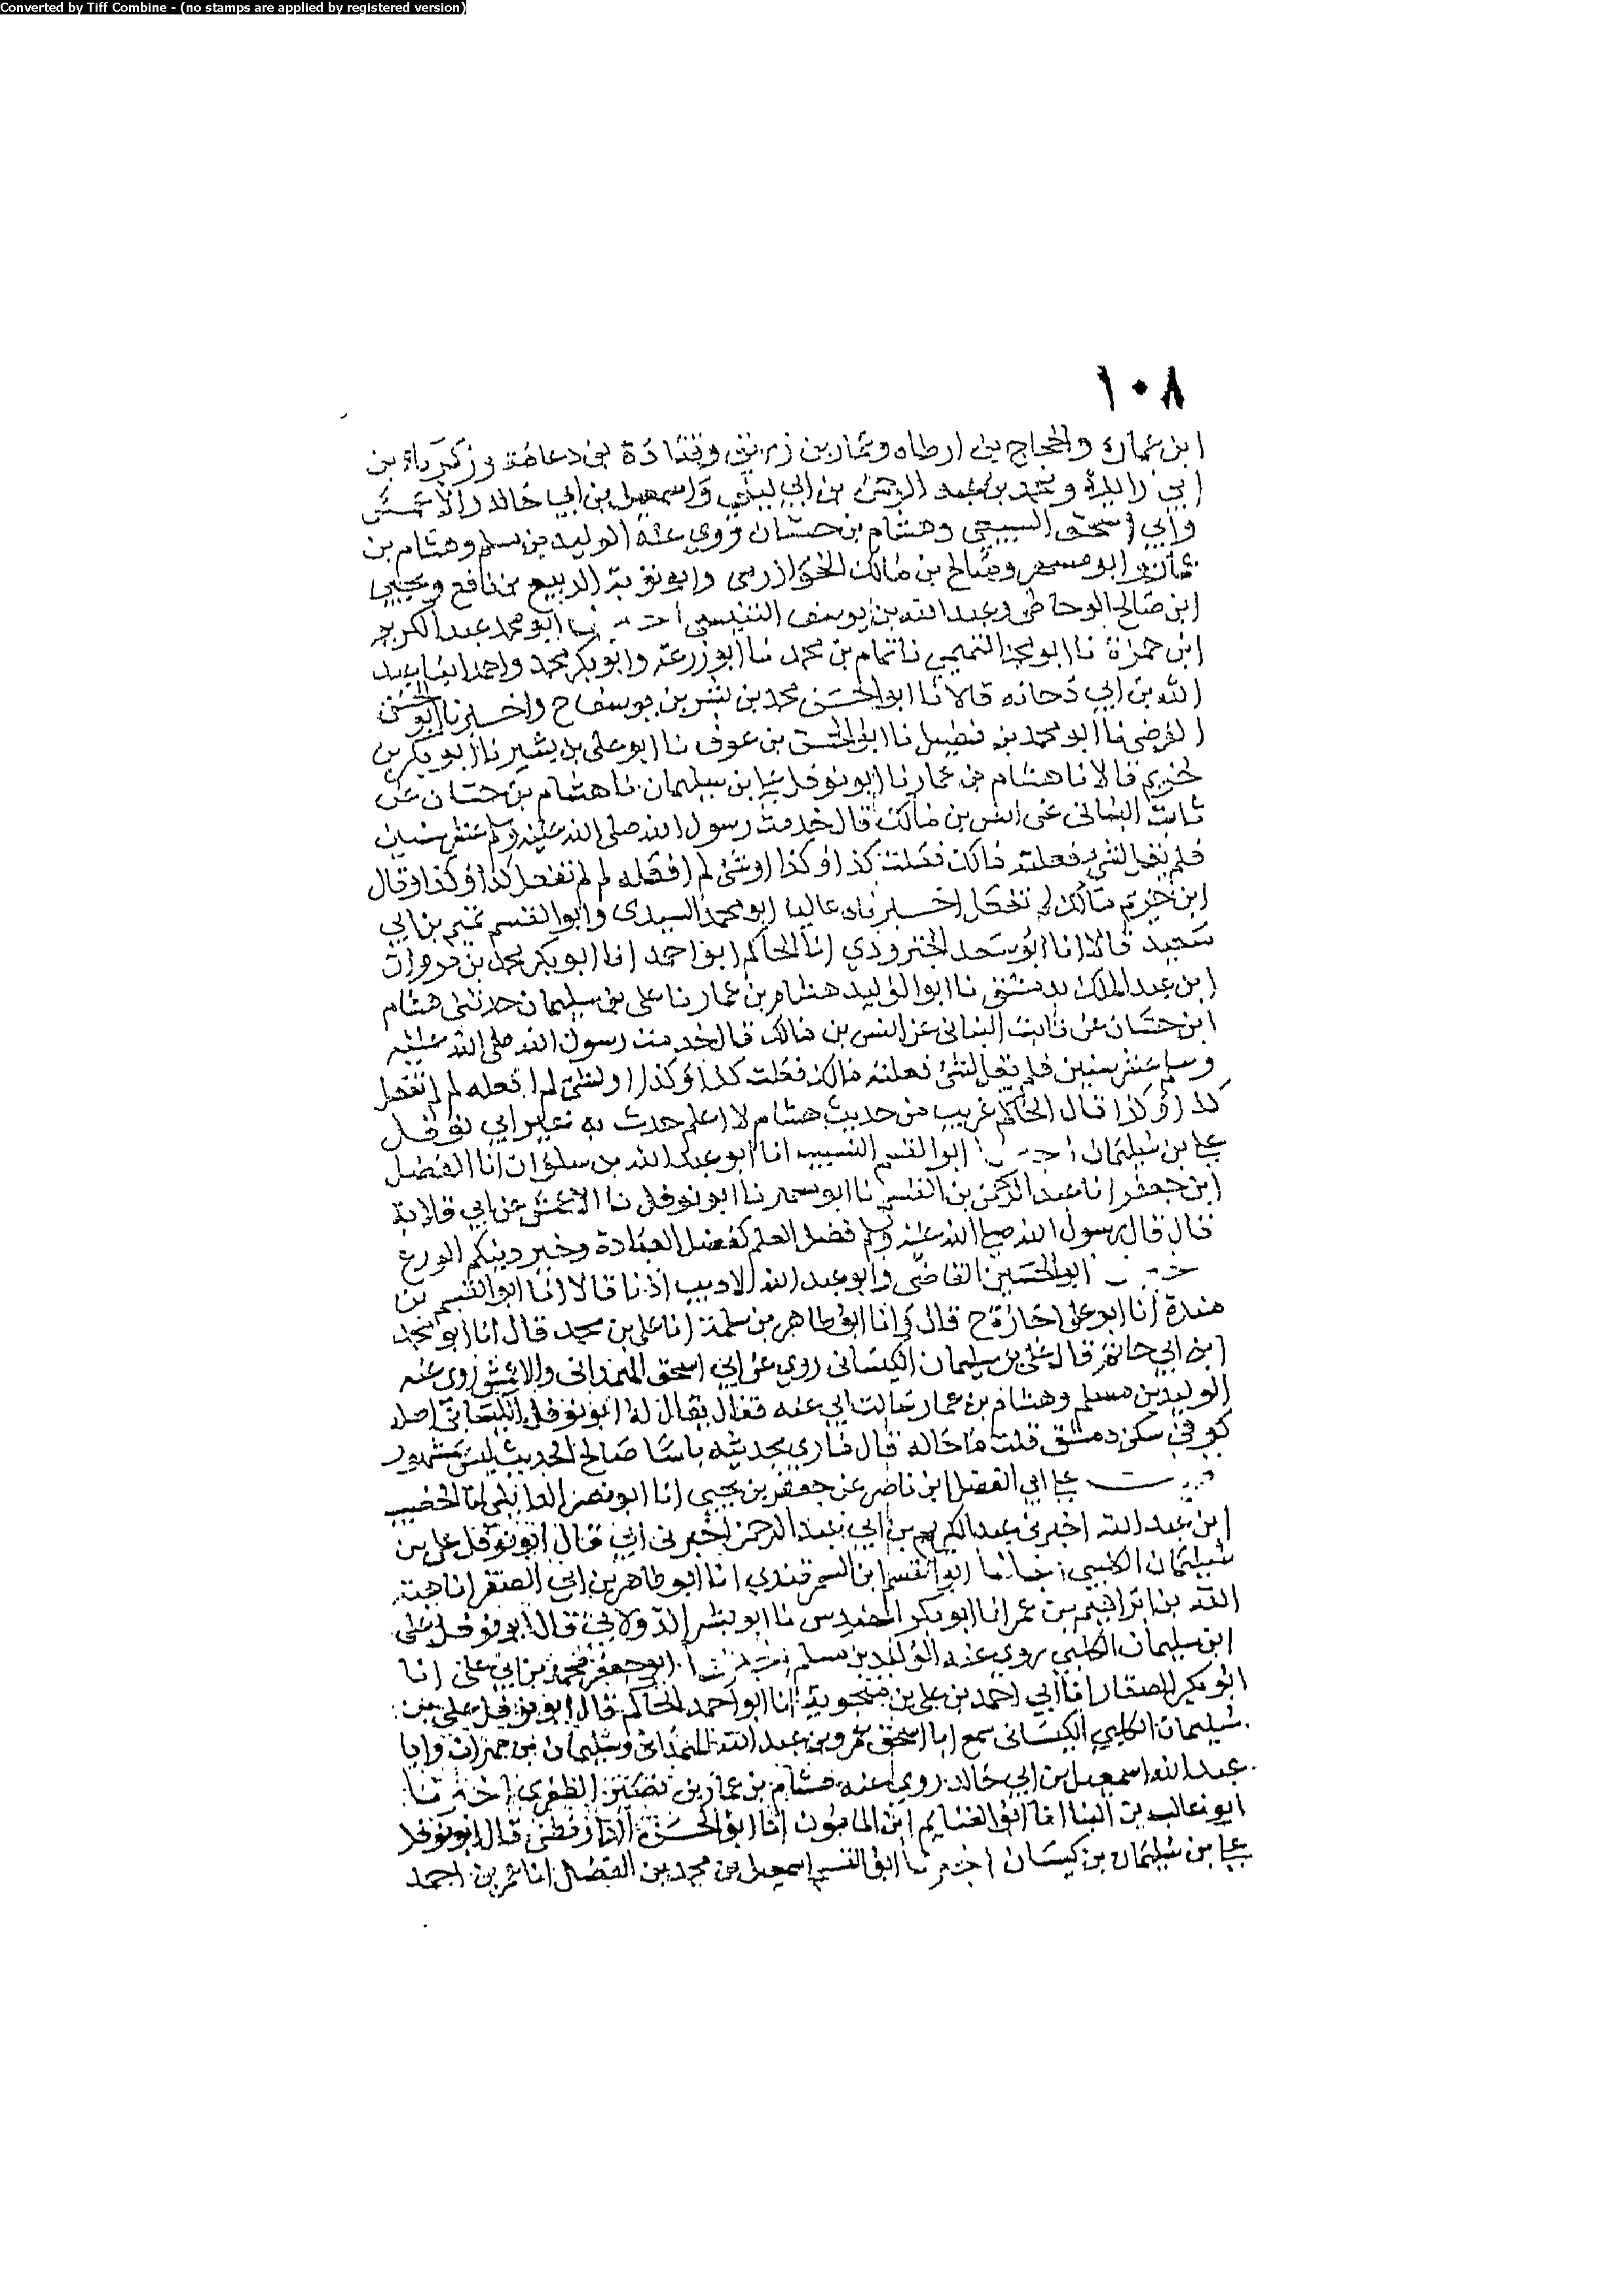 Converted by Tiff Combine - (no stamps are applied by registered version)
١٠٨
ابن عمارة والحجاج بن ارطاه وعمار بن زريق وقتادة بن دعامة وزكرياء بن
ابي زايدة ومحمد بن عبد الرحمن بن ابي ليلى واسمعيل بن ابي خالد والاعمش
وابي اسحق السبيعي وهشام بن حسان روي عنه الوليد بن مسلم وهشام بن
عمار وابو مسهر وصالح بن مالك الخوارزمي وابو توبة الربيع بن نافع ويحيى
ابن صالح الوحاظي وعبد الله بن يوسف التنيسي اخبرنا ابو محمد عبد الكريم
ابن حمزة نا ابو محمد التميمي نا تمام بن محمد نا ابو زرعة وابو بكر محمد واحمد ابنا عبد
الله بن ابي دجانه قالا نا ابو الحسن محمد بن بشر بن يوسف ح واخبرنا ابو الحسن
الفرضي نا ابو محمد بن فضيل نا ابو الحسن بن عوف نا ابو علي بن بشير نا ابو بكر بن
خريم قالا نا هشام بن عمار نا ابو نوفل علي بن سليمان نا هشام بن حسان عن
ثابت البناني عن انس بن مالك قال خدمت رسول الله صلى الله عليه وسلم عشر سنين
فلم يقل لشيء فعلته مالك فعلت كذا وكذا او شئ لم افعله لم لم تفعل كذا وكذا وقال
ابن خريم مالك لم تفعل اخبرناه عاليا ابو محمد السيدى وابو القسم تميم بن ابي
سعيد قالا انا ابو سعد الجنزرودي انا الحاكم ابو احمد انا ابو بكر محمد بن مروان
ابن عبد الملك بدمشق نا ابو الوليد هشام بن عمار نا علي بن سليمان حدثني هشام
ابن حسان عن ثابت البناني عن انس بن مالك قال خدمت رسول الله صلى الله عليه
وسلم عشر سنين فلم يقل لشئ فعلته مالك فعلت كذا وكذا او لشئ لم افعله لم لم تفعل
كذا وكذا قال الحاكم غريب من حديث هشام لا اعلم حدث به غير ابي نوفل
علي بن سليمان اخبرنا ابو القسم النسيب انا ابو عبد الله بن سلوان انا الفضل
ابن جعفر انا عبد الرحمن بن القسم نا ابو مسهر نا ابو نوفل نا الاعمش عن ابي قلابة
قال قال رسول الله صلى الله عليه وسلم فضل العلم كفضل العبادة وخير دينكم الورع
ابو الحسين القاضي وابو عبد الله الاديب اذنا قالا انا ابو القسم بن
مندة انا ابو علي اجازة ح قال وانا ابو طاهر بن سلمة انا علي بن محمد قال انا ابو محمد
ابن ابي حاتم قال علي بن سليمان الكيسانى روي عن ابي اسحق الهمداني والاعمش روى عنه
الوليد بن مسلم وهشام بن عمار سالت ابي عنه فقال يقال له ابو نوفل الكيساني اصله
كوفي سكن دمشق قلت ما حاله قال ما ارى بحديثه باسا صالح الحديث ليس بمشهور
علي ابي الفضل ابن ناصر عن جعفر بن يحيى انا ابو نصر الوايلي انا الخصيب
ابن عبد الله اخبرني عبد الكريم بن ابي عبد الرحمن اخبرني ابي قال ابو نوفل علي بن
سليمان الكلبي ابو القسم ابن السمرقندي انا ابو طاهر بن ابي الصقر انا هبة
الله بن ابراهيم بن عمر انا ابو بكر المهندس نا ابو بشر الدولابي قال ابو نوفل علي
ابن سليمان الكلبي روي عنه الوليد بن مسلم ابو جعفر محمد بن ابي علي انا
ابو بكر الصفار انا ابي احمد بن علي بن منجويه انا ابو احمد الحاكم قال ابو نوفل علي بن
سليمان الكلبي الكيساني سمع ابا اسحق عمرو بن عبد الله الهمداني وسليمان بن مهران وابا
عبد الله اسمعيل بن ابي خالد روى عنه هشام بن عمار بن نصير الظفري اخبرنا
ابو غالب بن البنا انا ابو الغنايم ابن المامون انا ابو الحسن الدارقطني قال ابو نوفل
علي بن سليمان بن كيسان اخبرنا ابو القسم اسمعيل بن محمد بن الفضل انا عمر بن احمد